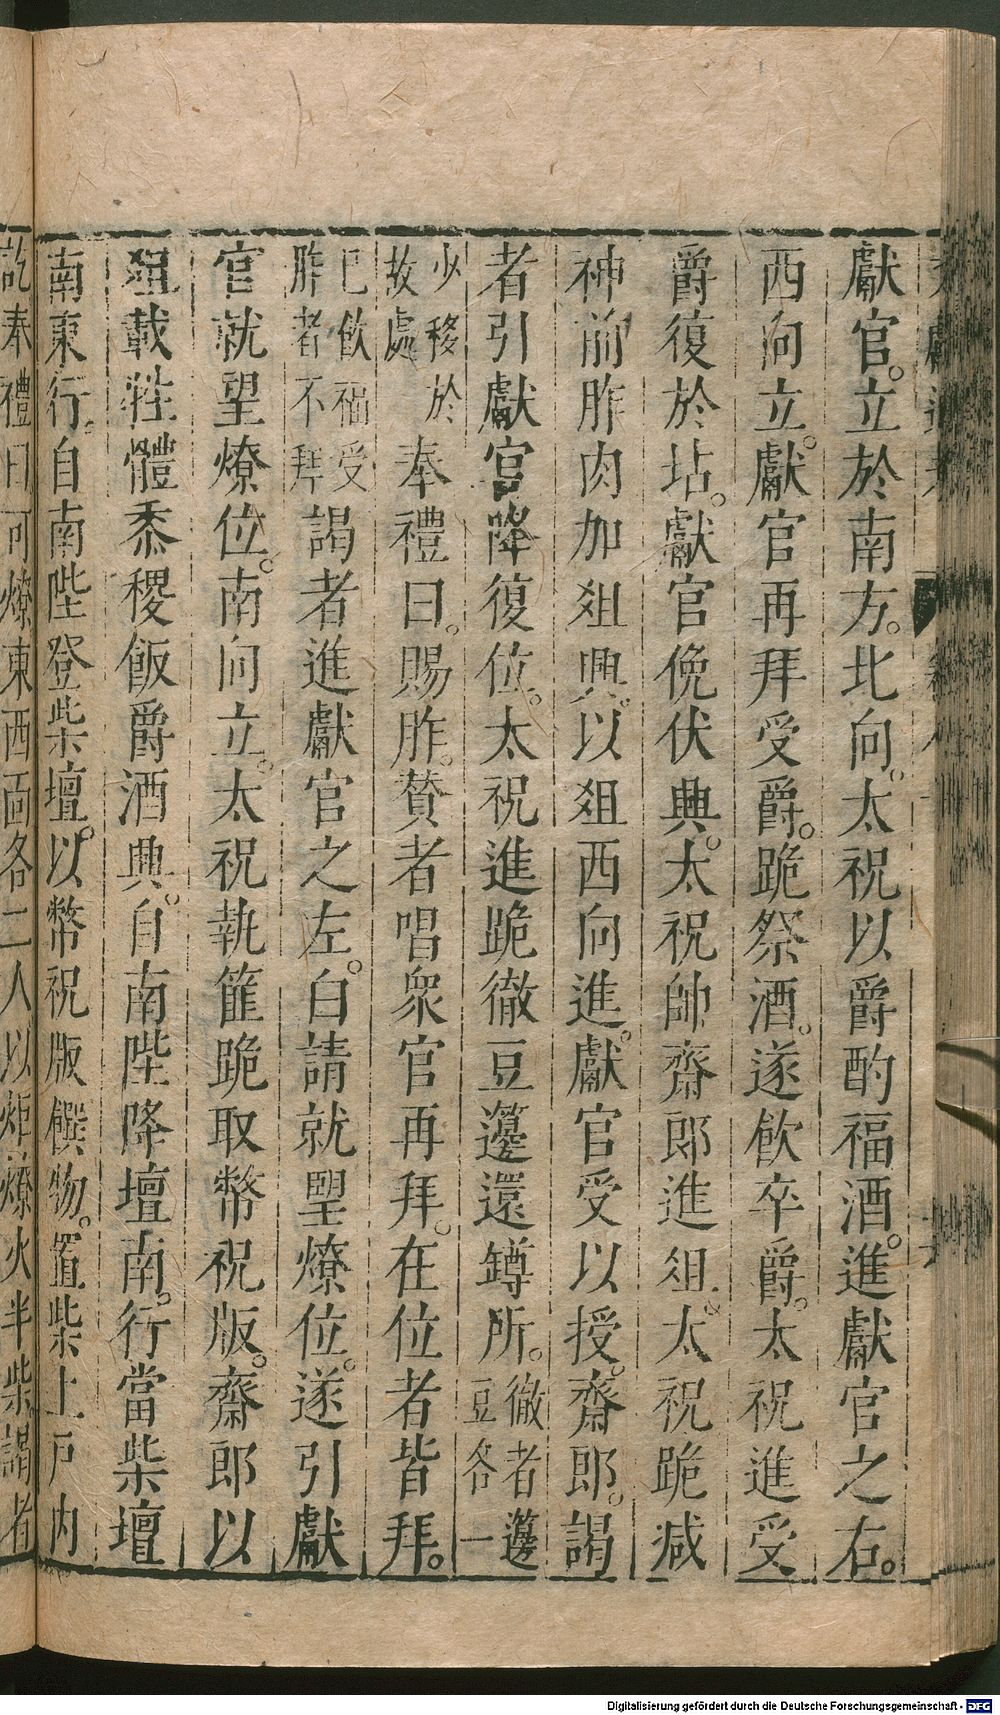 獻官。立於南方。北向。太祝以爵酌福酒。進獻官之右。
西向立。獻官再拜受爵。跪祭酒。遂飲卒爵。太祝進受
爵復於坫。獻官俛伏興。太祝帥齋郎進俎。太祝跪減
神前胙肉加俎興。以俎西向進。獻官受以授。齋郎。謁
者引獻官降復位。太祝進跪徹豆籩還鐏所。徹者籩豆各一
少移於故處奉禮曰。賜胙。贊者唱衆官再拜。在位者皆拜。
已飲福受胙者不拜謁者進獻官之左。白請就望燎位。遂引獻
官就望燎位。南向立。太祝執篚跪取幣祝版。齋郎以
俎載牲體黍稷飯爵酒興。自南陛降壇南。行當柴壇
南東行。自南陛登柴壇。以幣祝版饌物。置柴上戶內
訖奉禮曰可燎東西面各二人以炬燎火半柴謁者
Digitalisierung gefördert durch die Deutsche Forschungsgemeinschaft - DFG